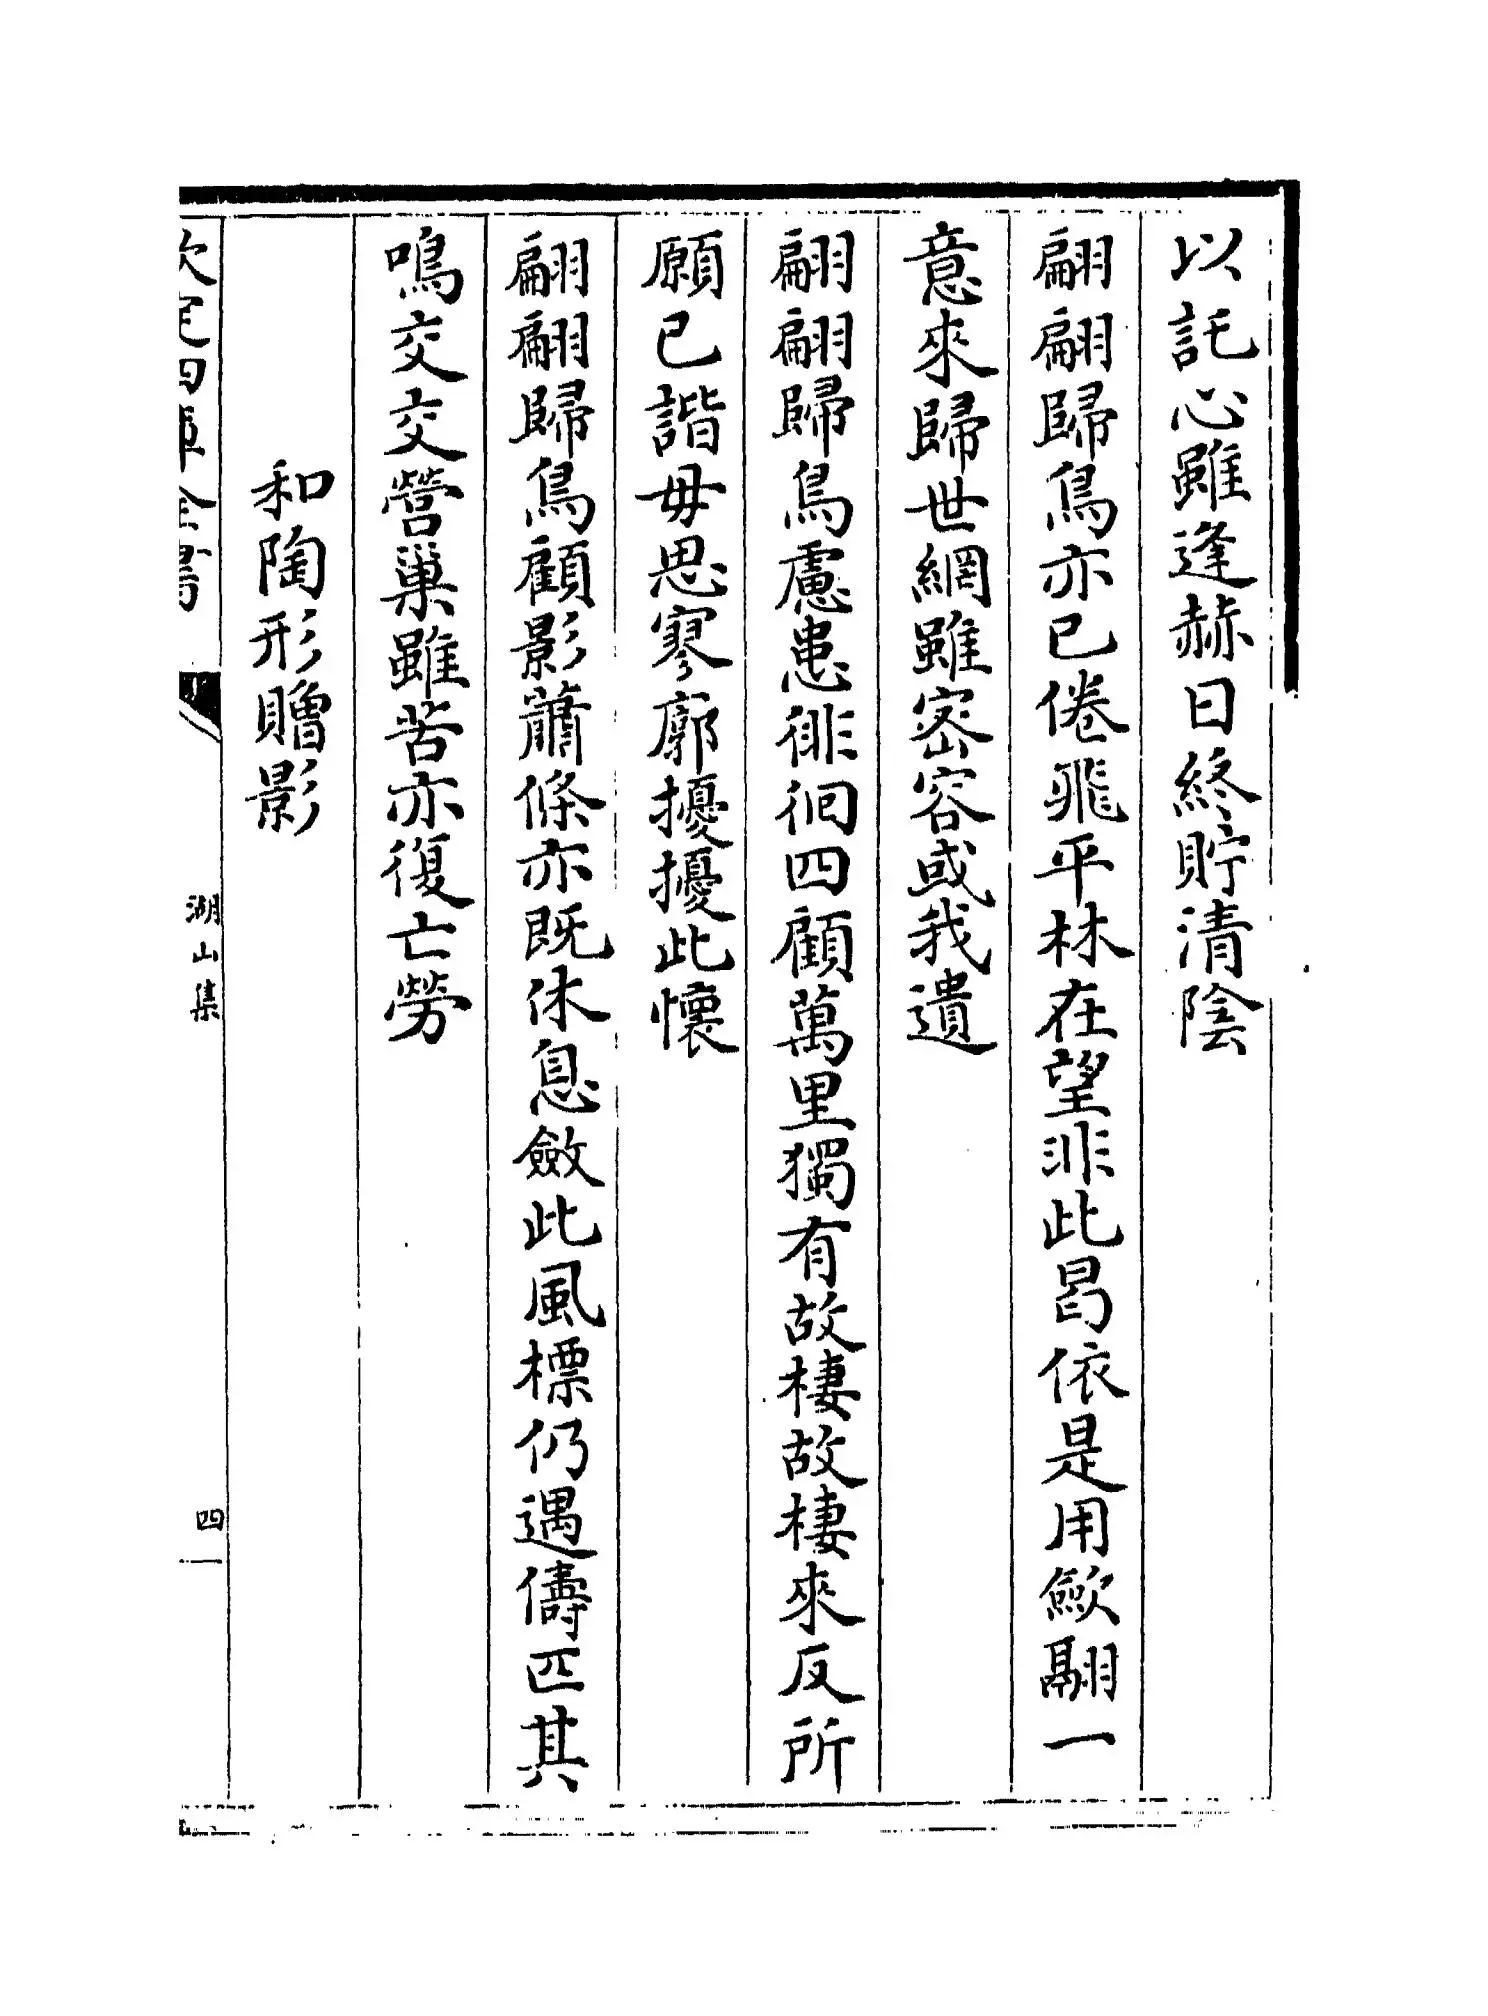 以託心雖逢赫日終貯清陰
翩翩歸鳥亦已倦飛平林在望非此曷依是用歛翮一
意來歸世網雖密容或我遺
翩翩歸鳥慮患徘徊四顧萬里獨有故棲故棲來反所
願已諧毋思寥廓擾擾此懷
翩翩歸鳥顧影蕭條亦既休息斂此風標仍遇儔匹其
鳴交交營巢雖苦亦復亡勞
和陶形贈影
欽定四庫全書
湖山集
四